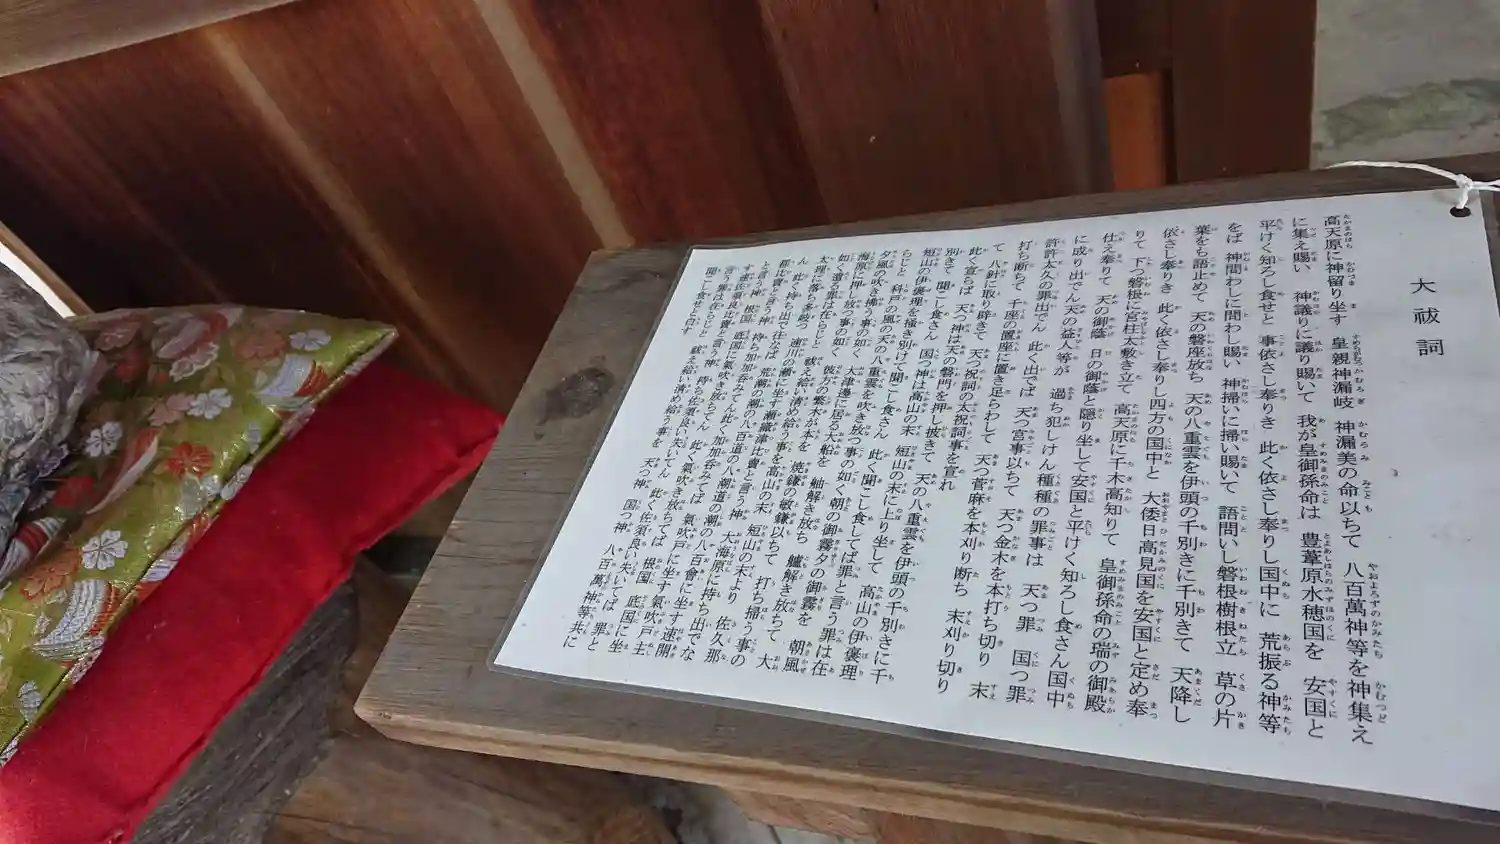 大祓詞
高天原に神留り坐す 皇親神漏岐 神漏美の命以ちて 八百萬神等を神集え
に集え賜い 神議りに議り賜いて 我が皇御孫命は 豊葦原水穂国を 安国と
平けく知ろし食せと 事依さし奉りき 此く依さし奉りし国中に 荒振る神等
をば 神問わしに問わし賜い 神掃いに掃い賜いて 語問いし磐根樹根立 草の片
葉をも語止めて 天の磐座放ち 天の八重雲を伊頭の千別きに千別きて 天降し
依さし奉りき 此く依さし奉りし四方の国中と 大倭日高見国を安国と定め奉
りて 下つ磐根に宮柱太敷き立て 高天原に千木高知りて 皇御孫命の瑞の御殿
仕え奉りて 天の御蔭 日の御蔭と隠り坐して安国と平けく知ろし食さん国中
に成り出でん天の益人等が 過ち犯しけん種種の罪事は 天つ罪 国つ罪
許許太久の罪出でん 此く出でば 天つ宮事以ちて 天つ金木を本打ち切り 末
打ち断ちて 千座の置座に置き足らわして 天つ菅麻を本刈り断ち 末刈り切り
て 八針に取り辟きて 天つ祝詞の太祝詞事を宣れ
此く宣らば 天つ神は天の磐門を押し披きて 天の八重雲を伊頭の千別きに千
別きて 聞こし食さん 国つ神は高山の末 短山の末に上り坐して 高山の伊褒理
短山の伊褒理を掻き別けて聞こし食さん 此く聞こし食してば 罪と言う罪は在
らじと 科戸の風の天の八重雲を吹き放つ事の如く 朝の御霧 夕の御霧を 朝風
夕風の吹き拂う事の如く 大津邊に居る大船を 舳解き放ち 艫解き放ちて 大
海原に押し放つ事の如く 彼方の繁木が本を 焼鎌の敏鎌以ちて 打ち掃う事の
如く 遺る罪は在らじと 祓え給い清め給う事を 高山の末 短山の末より 佐久那
太理に落ち多岐つ 速川の瀬に坐す瀬織津比賣と言う神 大海原に持ち出でな
ん 此く持ち出で往なば 荒潮の潮の八百道の八潮道の潮の八百會に坐す速開
都比賣と言う神 持ち加加呑みてん 此く加加呑みてば 氣吹戸に坐す氣吹戸主
と言う神 根国 底国に氣吹き放ちてん 此く氣吹き放ちてば 根国 底国に坐
す速佐須良比賣と言う神 持ち佐須良い失いてん 此く佐須良い失いてば 罪と
言う罪は在らじと 祓え給い清め給う事を 天つ神 国つ神 八百萬神等共に
聞こし食せと白す